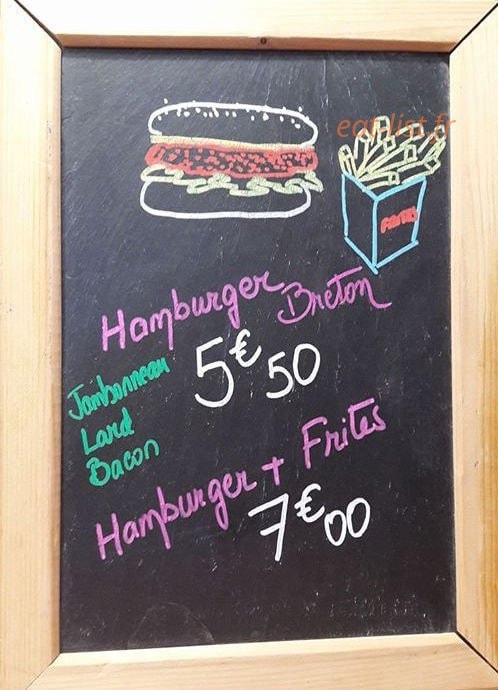 eat-list.fr
Frites
Hamburger Breton
5€50
Jambonneau
Lard
Bacon
Hamburger + Frites
7€00